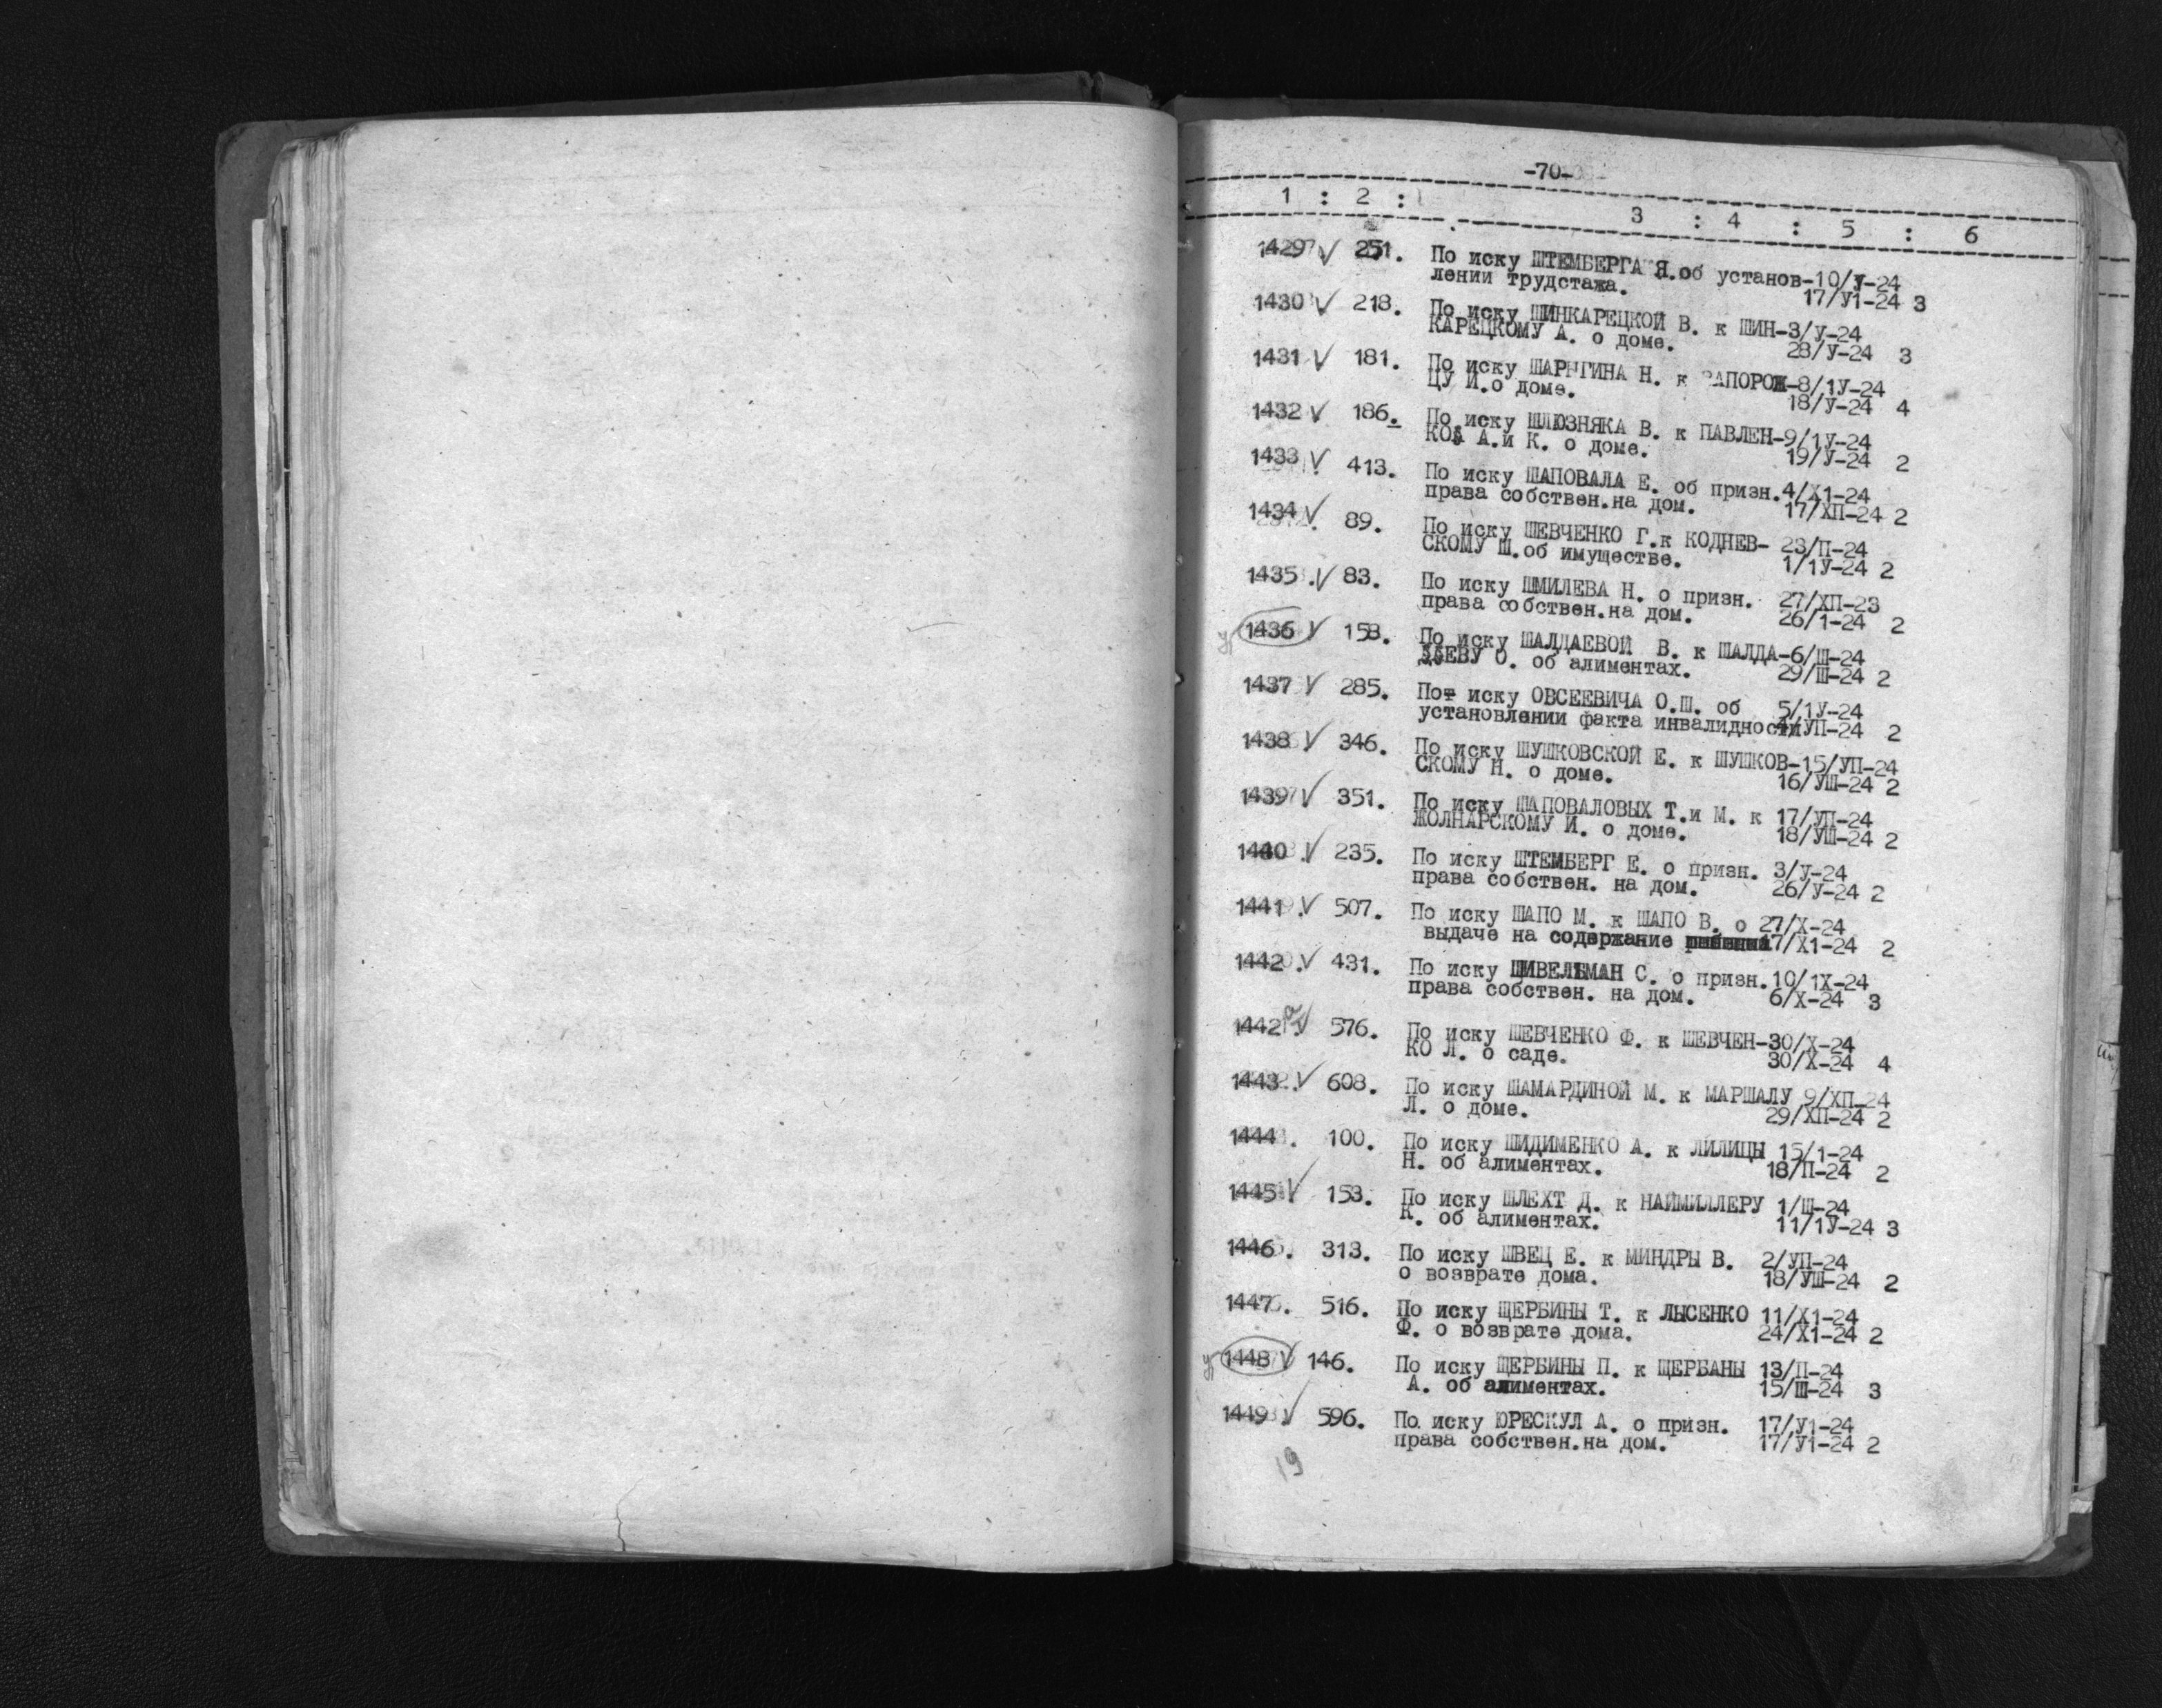 -70-
1 : 2 : 3 : 4 : 5 : 6
1429 √ 251. По иску ШТЕМБЕРГА Я.об установ-10/У-24
лении трудстажа. 17/У1-24 3
1430 √ 218. По иску ШИНКАРЕЦКОЙ В. к ШИН-3/У-24
КАРЕЦКОМУ А. о доме. 28/У-24 3
1431 √ 181. По иску ШАРЫГИНА Н. к ЗАПОРОЖ-8/1У-24
ЦУ И.о доме. 18/У-24 4
1432 √ 186. По иску ШЛЮЗНЯКА В. к ПАВЛЕН-9/1У-24
А.и К. о доме. 19/У-24 2
1433 √ 413. По иску ШАПОВАЛА Е. об призн.4/Х1-24
права собствен.на дом. 17/ХП-24 2
1434 √ 89. По иску ШЕВЧЕНКО Г.к КОДНЕВ- 23/П-24
СКОМУ Ш.об имуществе. 1/1У-24 2
1435 √ 83. По иску ШМИЛЕВА Н. о призн. 27/ХП-23
права собствен.на дом. 26/1-24 2
1436 √ 158. По иску ШАЛДАЕВОЙ В. к ШАЛДА-6/Ш-24
ЕВУ О. об алиментах. 29/Ш-24 2
1437 √ 285. По иску ОВСЕЕВИЧА О.Ш. об 5/1У-24
установлении факта инвалидности /УП-24 2
1438 √ 346. По иску ШУШКОВСКОЙ Е. к ШУШКОВ-15/УП-24
СКОМУ Н. о доме. 16/УШ-24 2
1439 √ 351. По иску ШАПОВАЛОВЫХ Т.и М. к 17/УП-24
ЖОЛНАРСКОМУ И. о доме. 18/УШ-24 2
1440 √ 235. По иску ШТЕМБЕРГ Е. о призн. 3/У-24
права собствен. на дом. 26/У-24 2
1441 √ 507. По иску ШАПО М. к ШАПО В. о 27/Х-24
выдаче на содержание 17/Х1-24 2
1442 √ 431. По иску ШИВЕЛЬМАН С. о призн.10/1Х-24
права собствен. на дом. 6/Х-24 3
1442а √ 576. По иску ШЕВЧЕНКО Ф. к ШЕВЧЕН-30/Х-24
КО Л. о саде. 30/Х-24 4
1443 √ 608. По иску ШАМАРДИНОЙ М. к МАРШАЛУ 9/ХП-24
Л. о доме. 29/ХП-24 2
1444. 100. По иску ШИДИМЕНКО А. к ЛИЛИЦЫ 15/1-24
Н. об алиментах. 18/П-24 2
1445 √ 153. По иску ШЛЕХТ Д. к НАЙМИЛЛЕРУ 1/Ш-24
К. об алиментах. 11/1У-24 3
1446. 313. По иску ШВЕЦ Е. к МИНДРЫ В. 2/УП-24
о возврате дома. 18/УШ-24 2
1447. 516. По иску ЩЕРБИНЫ Т. к ЛЫСЕНКО 11/Х1-24
Ф. о возврате дома. 24/Х1-24 2
1448 √ 146. По иску ЩЕРБИНЫ П. к ЩЕРБАНЫ 13/П-24
А. об алиментах. 15/Ш-24 3
1449 √ 596. По иску ЮРЕСКУЛ А. о призн. 17/У1-24
права собствен.на дом. 17/У1-24 2
19